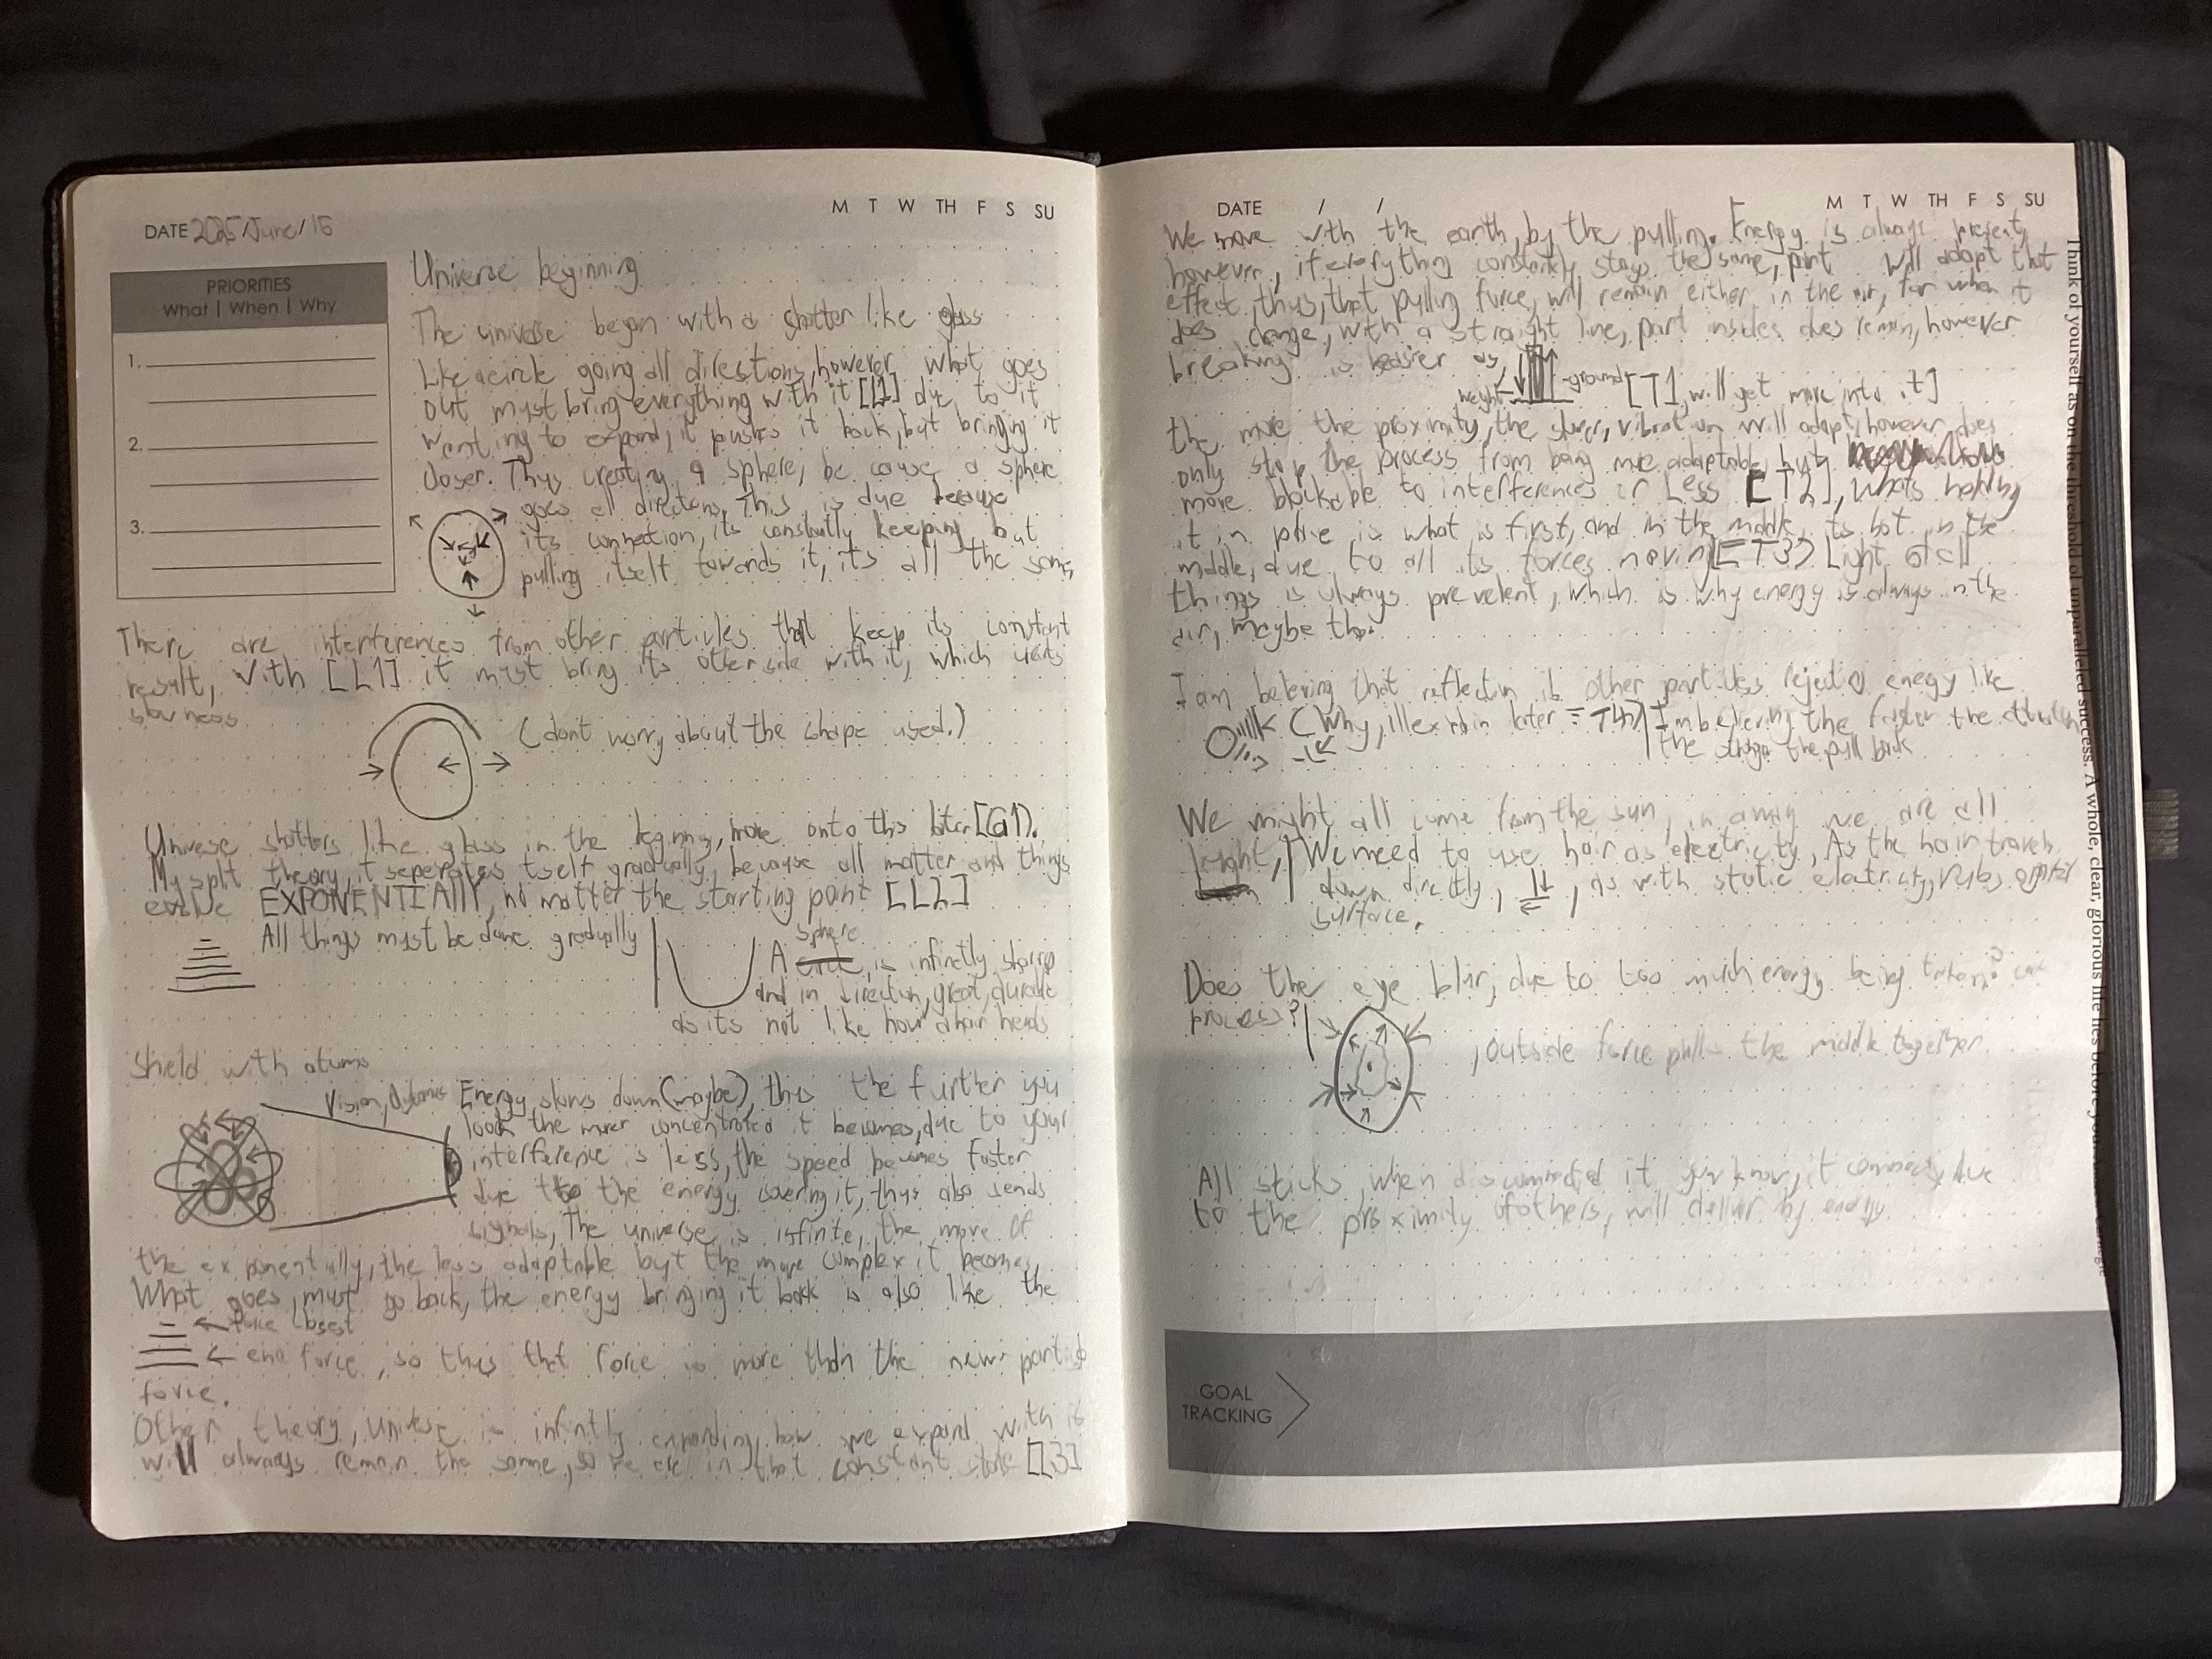 DATE 2025/June/15
M T W TH F S SU
PRIORITIES
What | When | Why
1.
2.
3.
Universe beginning
The universe began with a shatter like glass
Like a circle going all directions, however what goes
out must bring everything with it [L1] due to it
wanting to expand, it pushes it back, but bringing it
closer. Thus creating a sphere, because a sphere
goes all directions, This is due because
its connection, its constantly keeping but
pulling itself towards it, it's all the same,
There are interferences from other particles that keep its constant
result, with [L1] it must bring its other side with it, which
slowness
(dont worry about the shape used.)
Universe shatters like glass in the beginning, more onto this later [G1).
My split theory, it seperates itself gradually, because all matter and things
evolve EXPONENTIALLY, no matter the starting point [L2]
All things must be done gradually
sphere
A is infinetly sharp
and in direction, great, durable
as its not like how a hair
shield with atoms
Vision, Energy slows down (maybe), thus the further you
look the more concentrated it becomes, due to your
interference is less, the speed becomes faster
due to the energy covering it, thus also sends
signals, The universe is infinite, the more of
the exponentially, the less adaptable but the more complex it becomes,
What goes, must go back, the energy bringing it back is also like the
closest
end force, so thus that force is more than the new
force.
Other theory, universe is infintly expanding, how we expand with it
will always remain the same, so we are in that constant state [L3]
DATE / /
M T W TH F S SU
We move with the earth, by the pulling. Energy is always present,
however, if everything constantly stays the same, part will adapt that
effect, thus, that pulling force, will remain either in the air, for when it
does change, with a straight line, part insides does remain, however
breaking is easier as
weight ground [T1, will get more into it]
the more the proximity, the slower, vibration will adapt, however does
only stop the process from being more adaptable, but
more blockable to interferences or less [T2], whats holding
it in place is what is first, and in the middle, its hot in the
middle, due to all its forces moving [T3) Light of all
things is always prevelent, which is why energy is always in the
air, maybe tho.
I am believing that reflection is other particles rejecting energy like
(Why, ill explain later = T4) Im believing the faster the
the stronger the pull back
We might all come from the sun, in a way we are all
Light, We need to use hair as electricity, As the hair travels
down directly, , as with static electricity, rubs
surface.
Does the eye blur, due to too much energy being taken?
process?
, outside force pulls the middle together
All sticks, when disconnected it you know, it connects, due
to the proximity of others, will
GOAL
TRACKING
Think of yourself as on the threshold of unparalleled success. A whole, clear, glorious life lies before you.